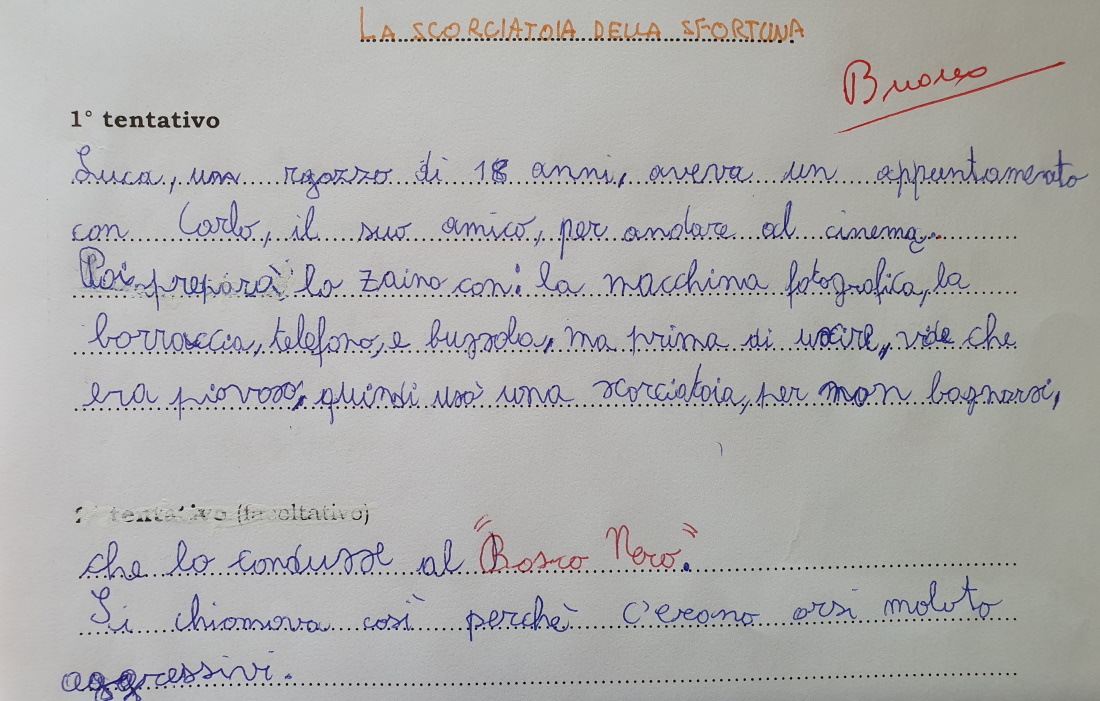 LA SCORCIATOIA DELLA SFORTUNA
Buono
1° tentativo
Luca, un rgazzo di 18 anni, aveva un appuntamento
con Carlo, il suo amico, per andare al cinema.
Poi preparà lo zaino con: la macchina fotografica, la
borraccia, telefono, e bussola, ma prima di uscire, vide che
era piovoso, quindi usò una scorciatoia, per non bagnarsi,
2° tentativo (facoltativo)
che lo condusse al "Bosco Nero".
Si chiamava così perchè c'erano orsi moloto
aggressivi.